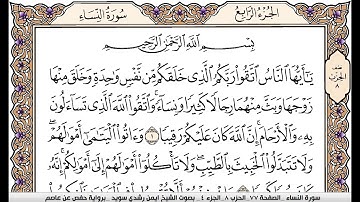 الجزء الرابع سورة النساء
نصف
الحزب
٨
بسم الله الرحمن الرحيم
يَٰٓأَيُّهَا ٱلنَّاسُ ٱتَّقُوا۟ رَبَّكُمُ ٱلَّذِى خَلَقَكُم مِّن نَّفْسٍ وَٰحِدَةٍ وَخَلَقَ مِنْهَا
زَوْجَهَا وَبَثَّ مِنْهُمَا رِجَالًا كَثِيرًا وَنِسَآءً ۚ وَٱتَّقُوا۟ ٱللَّهَ ٱلَّذِى تَسَآءَلُونَ
بِهِۦ وَٱلْأَرْحَامَ ۚ إِنَّ ٱللَّهَ كَانَ عَلَيْكُمْ رَقِيبًا ١ وَءَاتُوا۟ ٱلْيَتَٰمَىٰٓ أَمْوَٰلَهُمْ ۖ
وَلَا تَتَبَدَّلُوا۟ ٱلْخَبِيثَ بِٱلطَّيِّبِ ۖ وَلَا تَأْكُلُوٓا۟ أَمْوَٰلَهُمْ إِلَىٰٓ أَمْوَٰلِكُمْ ۚ إِنَّهُۥ
سورة النساء _ الصفحة ٧٧_ الحزب ٨_ الجزء ٤ _ بصوت الشيخ ايمن رشدي سويد _ برواية حفص عن عاصم